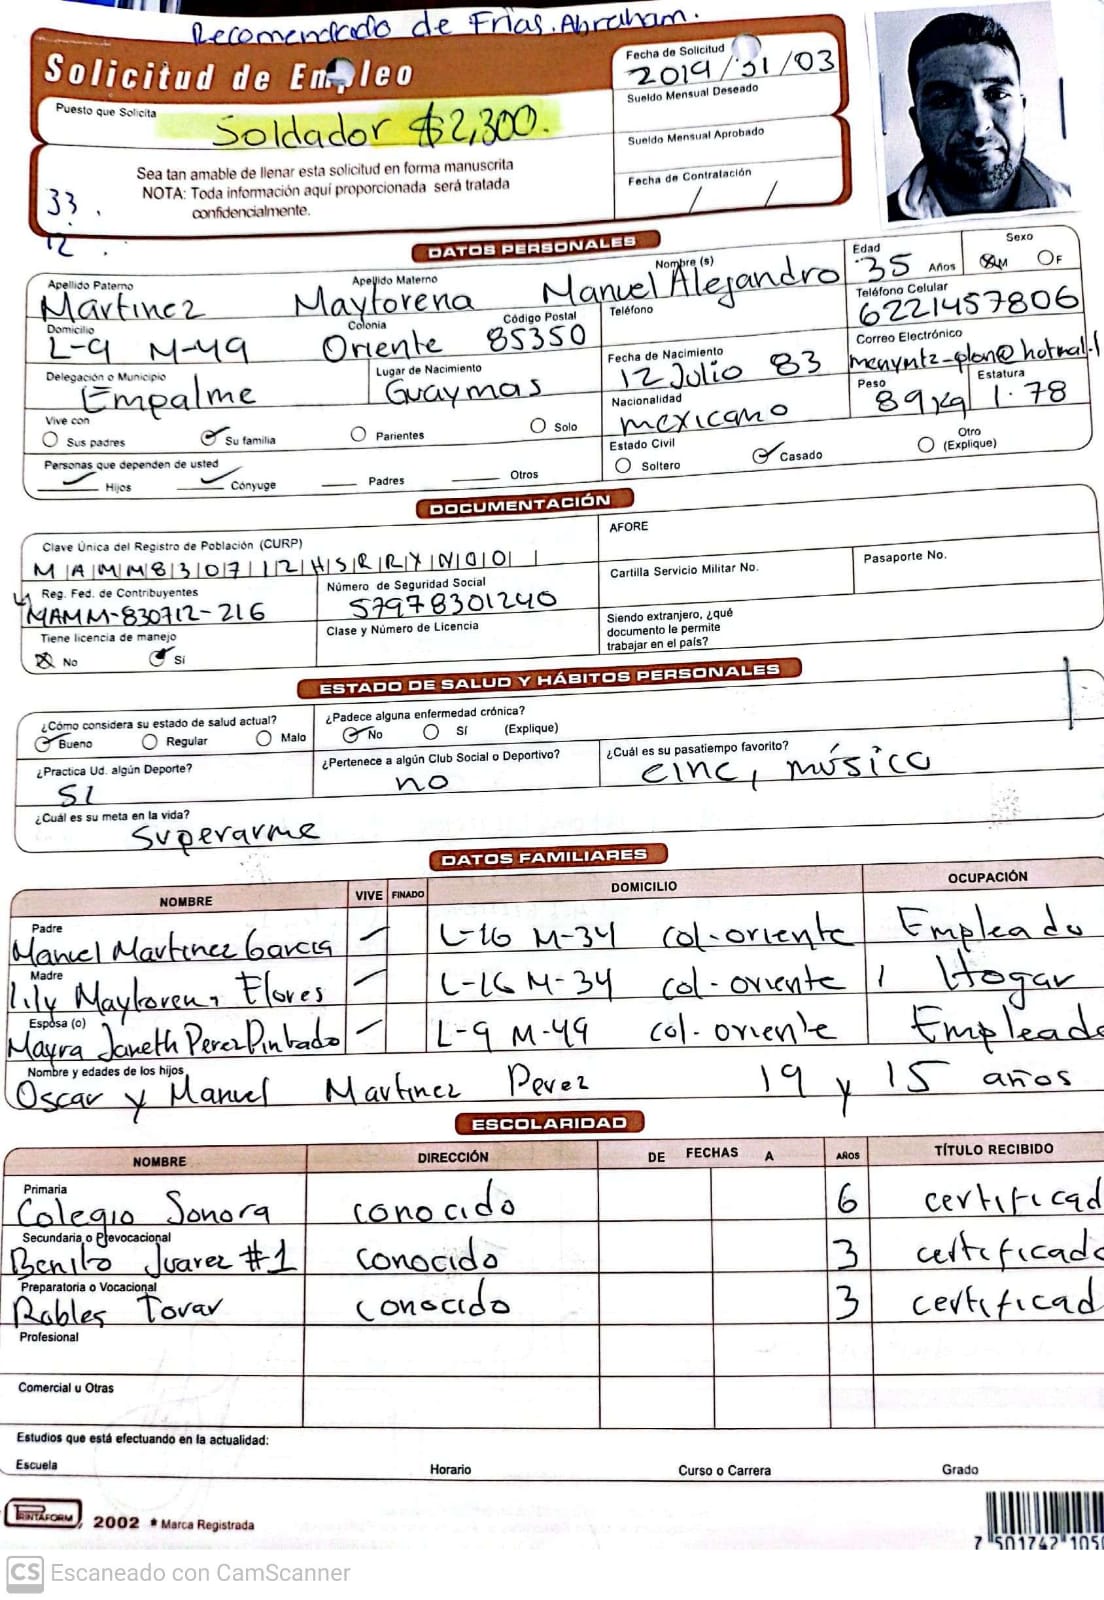 Recomendado de Frias. Abraham.
Solicitud de Empleo
Fecha de Solicitud
2019/31/03
Puesto que Solicita
Soldador $2,300.
Sueldo Mensual Deseado
Sueldo Mensual Aprobado
Fecha de Contratación
/ /
Sea tan amable de llenar esta solicitud en forma manuscrita
NOTA: Toda información aquí proporcionada será tratada
confidencialmente.
33.
12.
DATOS PERSONALES
Apellido Paterno Apellido Materno Nombre (s) Edad Sexo
Martinez Maytorena Manuel Alejandro 35 Años M F
Domicilio Colonia Código Postal Teléfono Teléfono Celular
L-9 M-49 Oriente 85350 6221457806
Delegación o Municipio Lugar de Nacimiento Fecha de Nacimiento Correo Electrónico
Empalme Guaymas 12 Julio 83
Nacionalidad Peso Estatura
mexicano 89 kg 1.78
Vive con
Sus padres Su familia Parientes Solo
Estado Civil
Soltero Casado Otro (Explique)
Personas que dependen de usted
Hijos Cónyuge Padres Otros
DOCUMENTACIÓN
Clave Única del Registro de Población (CURP) AFORE
MAMM830712HSRRYN00
Reg. Fed. de Contribuyentes Número de Seguridad Social Cartilla Servicio Militar No. Pasaporte No.
MAMM-830712-216 57978301240
Tiene licencia de manejo Clase y Número de Licencia
No Sí
Siendo extranjero, ¿qué
documento le permite
trabajar en el país?
ESTADO DE SALUD Y HÁBITOS PERSONALES
¿Cómo considera su estado de salud actual? ¿Padece alguna enfermedad crónica?
Bueno Regular Malo No Sí (Explique)
¿Practica Ud. algún Deporte? ¿Pertenece a algún Club Social o Deportivo? ¿Cuál es su pasatiempo favorito?
SI no cine, música
¿Cuál es su meta en la vida?
superarme
DATOS FAMILIARES
NOMBRE VIVE FINADO DOMICILIO OCUPACIÓN
Padre
Manuel Martinez Garcia L-16 M-34 col-oriente Empleado
Madre
Lily Maytorena Flores L-16 M-34 col-oriente Hogar
Esposa (o)
Mayra Janeth Perez Pintado L-9 M-49 col-oriente Empleado
Nombre y edades de los hijos
Oscar y Manuel Martinez Perez 19 y 15 años
ESCOLARIDAD
NOMBRE DIRECCIÓN DE FECHAS A AÑOS TÍTULO RECIBIDO
Primaria
Colegio Sonora conocido 6 certificad
Secundaria o Prevocacional
Benito Juarez #1 conocido 3 certificado
Preparatoria o Vocacional
Robles Tovar conocido 3 certificad
Profesional
Comercial u Otras
Estudios que está efectuando en la actualidad:
Escuela Horario Curso o Carrera Grado
PRINTAFORM 2002 * Marca Registrada
7 501742 105
CS Escaneado con CamScanner